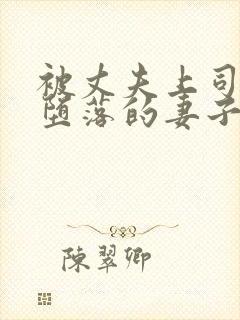 被丈夫上司
堕落的妻子
陳翠卿